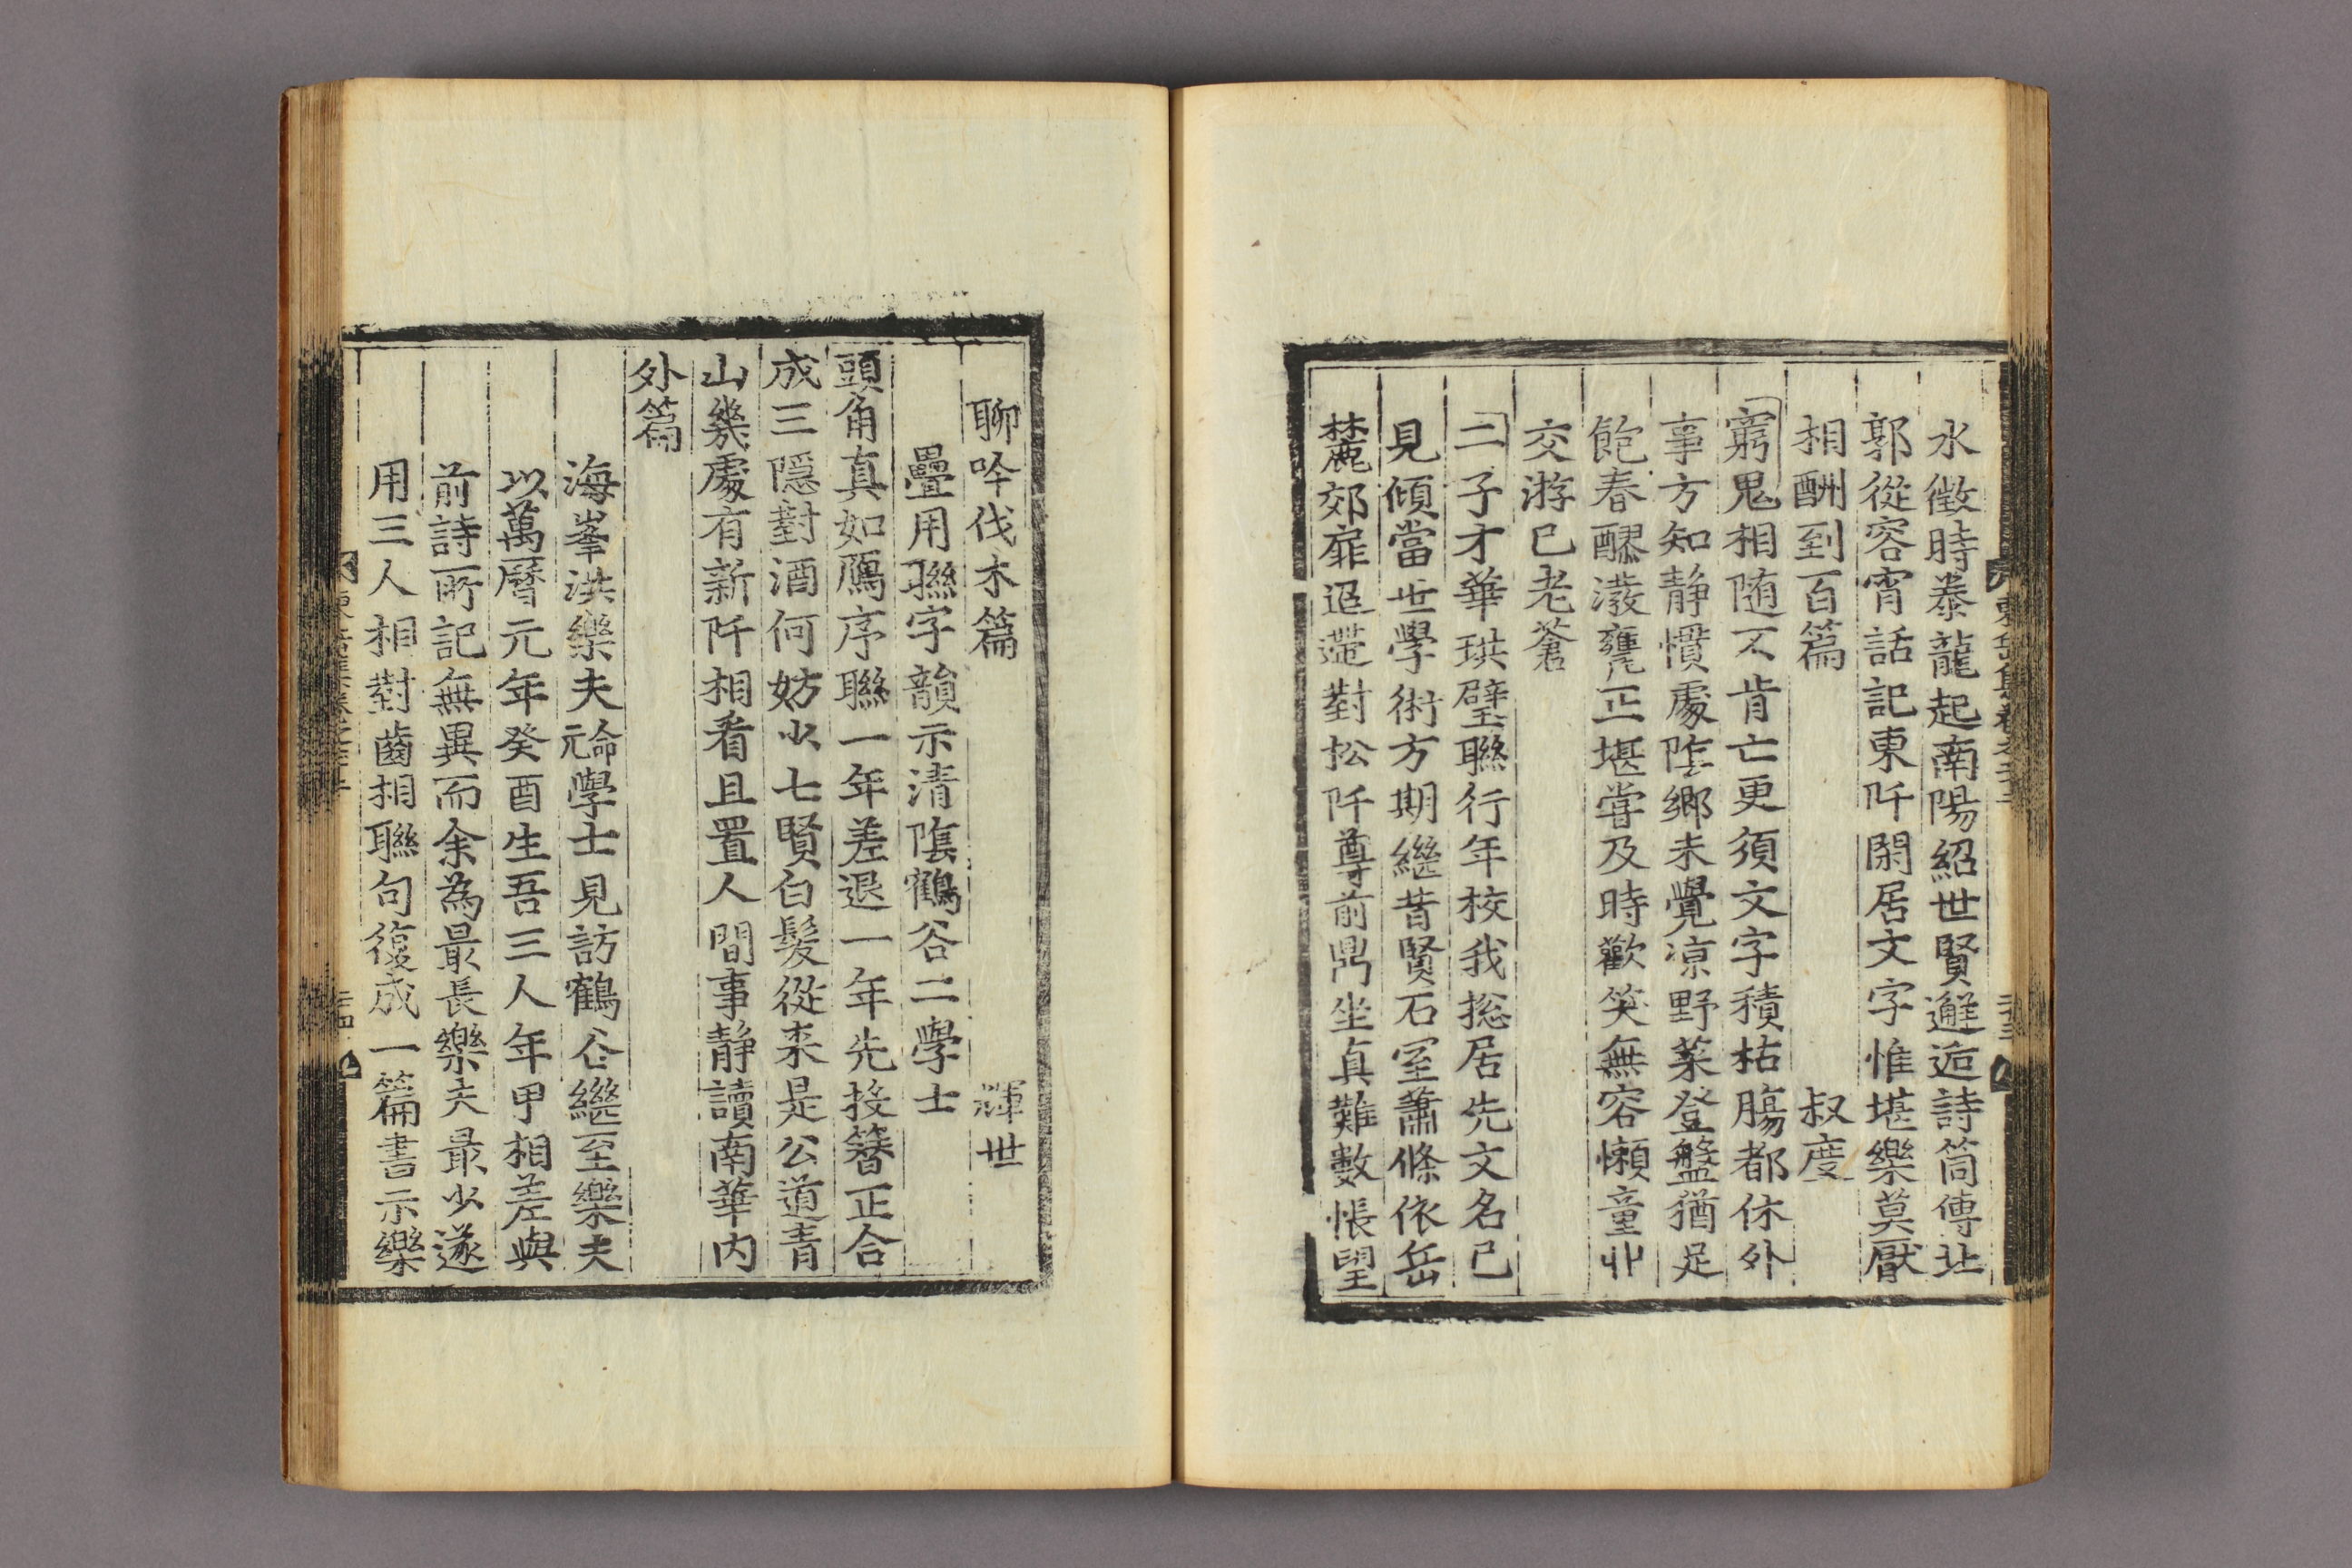 水徵時泰龍起南陽紹世賢邂逅詩筒傳北
郭從容宵話記東阡閑居文字惟堪樂莫厭
相酬到百篇 叔度
窮鬼相随不肯亡更須文字積枯腸都休外
事方知静慣處隂鄉未覺凉野菜登盤猶足
飽春醪潑甕正堪甞及時歡笑無容懶童丱
交游已老蒼
二子才華珙璧聯行年校我捴居先文名已
見傾當世學術方期繼昔賢石室蕭條依岳
麓郊扉迢遰對松阡尊前鼎坐真難數悵望
聊吟伐木篇 輝世
疊用聯字韻示清隂鶴谷二學士
頭角真如鴈序聯一年差退一年先投簪正合
成三隱對酒何妨少七賢白髮從来是公道青
山幾處有新阡相看且置人間事静讀南華内
外篇
海峯洪樂夫命元學士見訪鶴谷繼至樂夫
以萬曆元年癸酉生吾三人年甲相差與
前詩所記無異而余為最長樂夫最少遂
用三人相對齒相聯句復成一篇書示樂